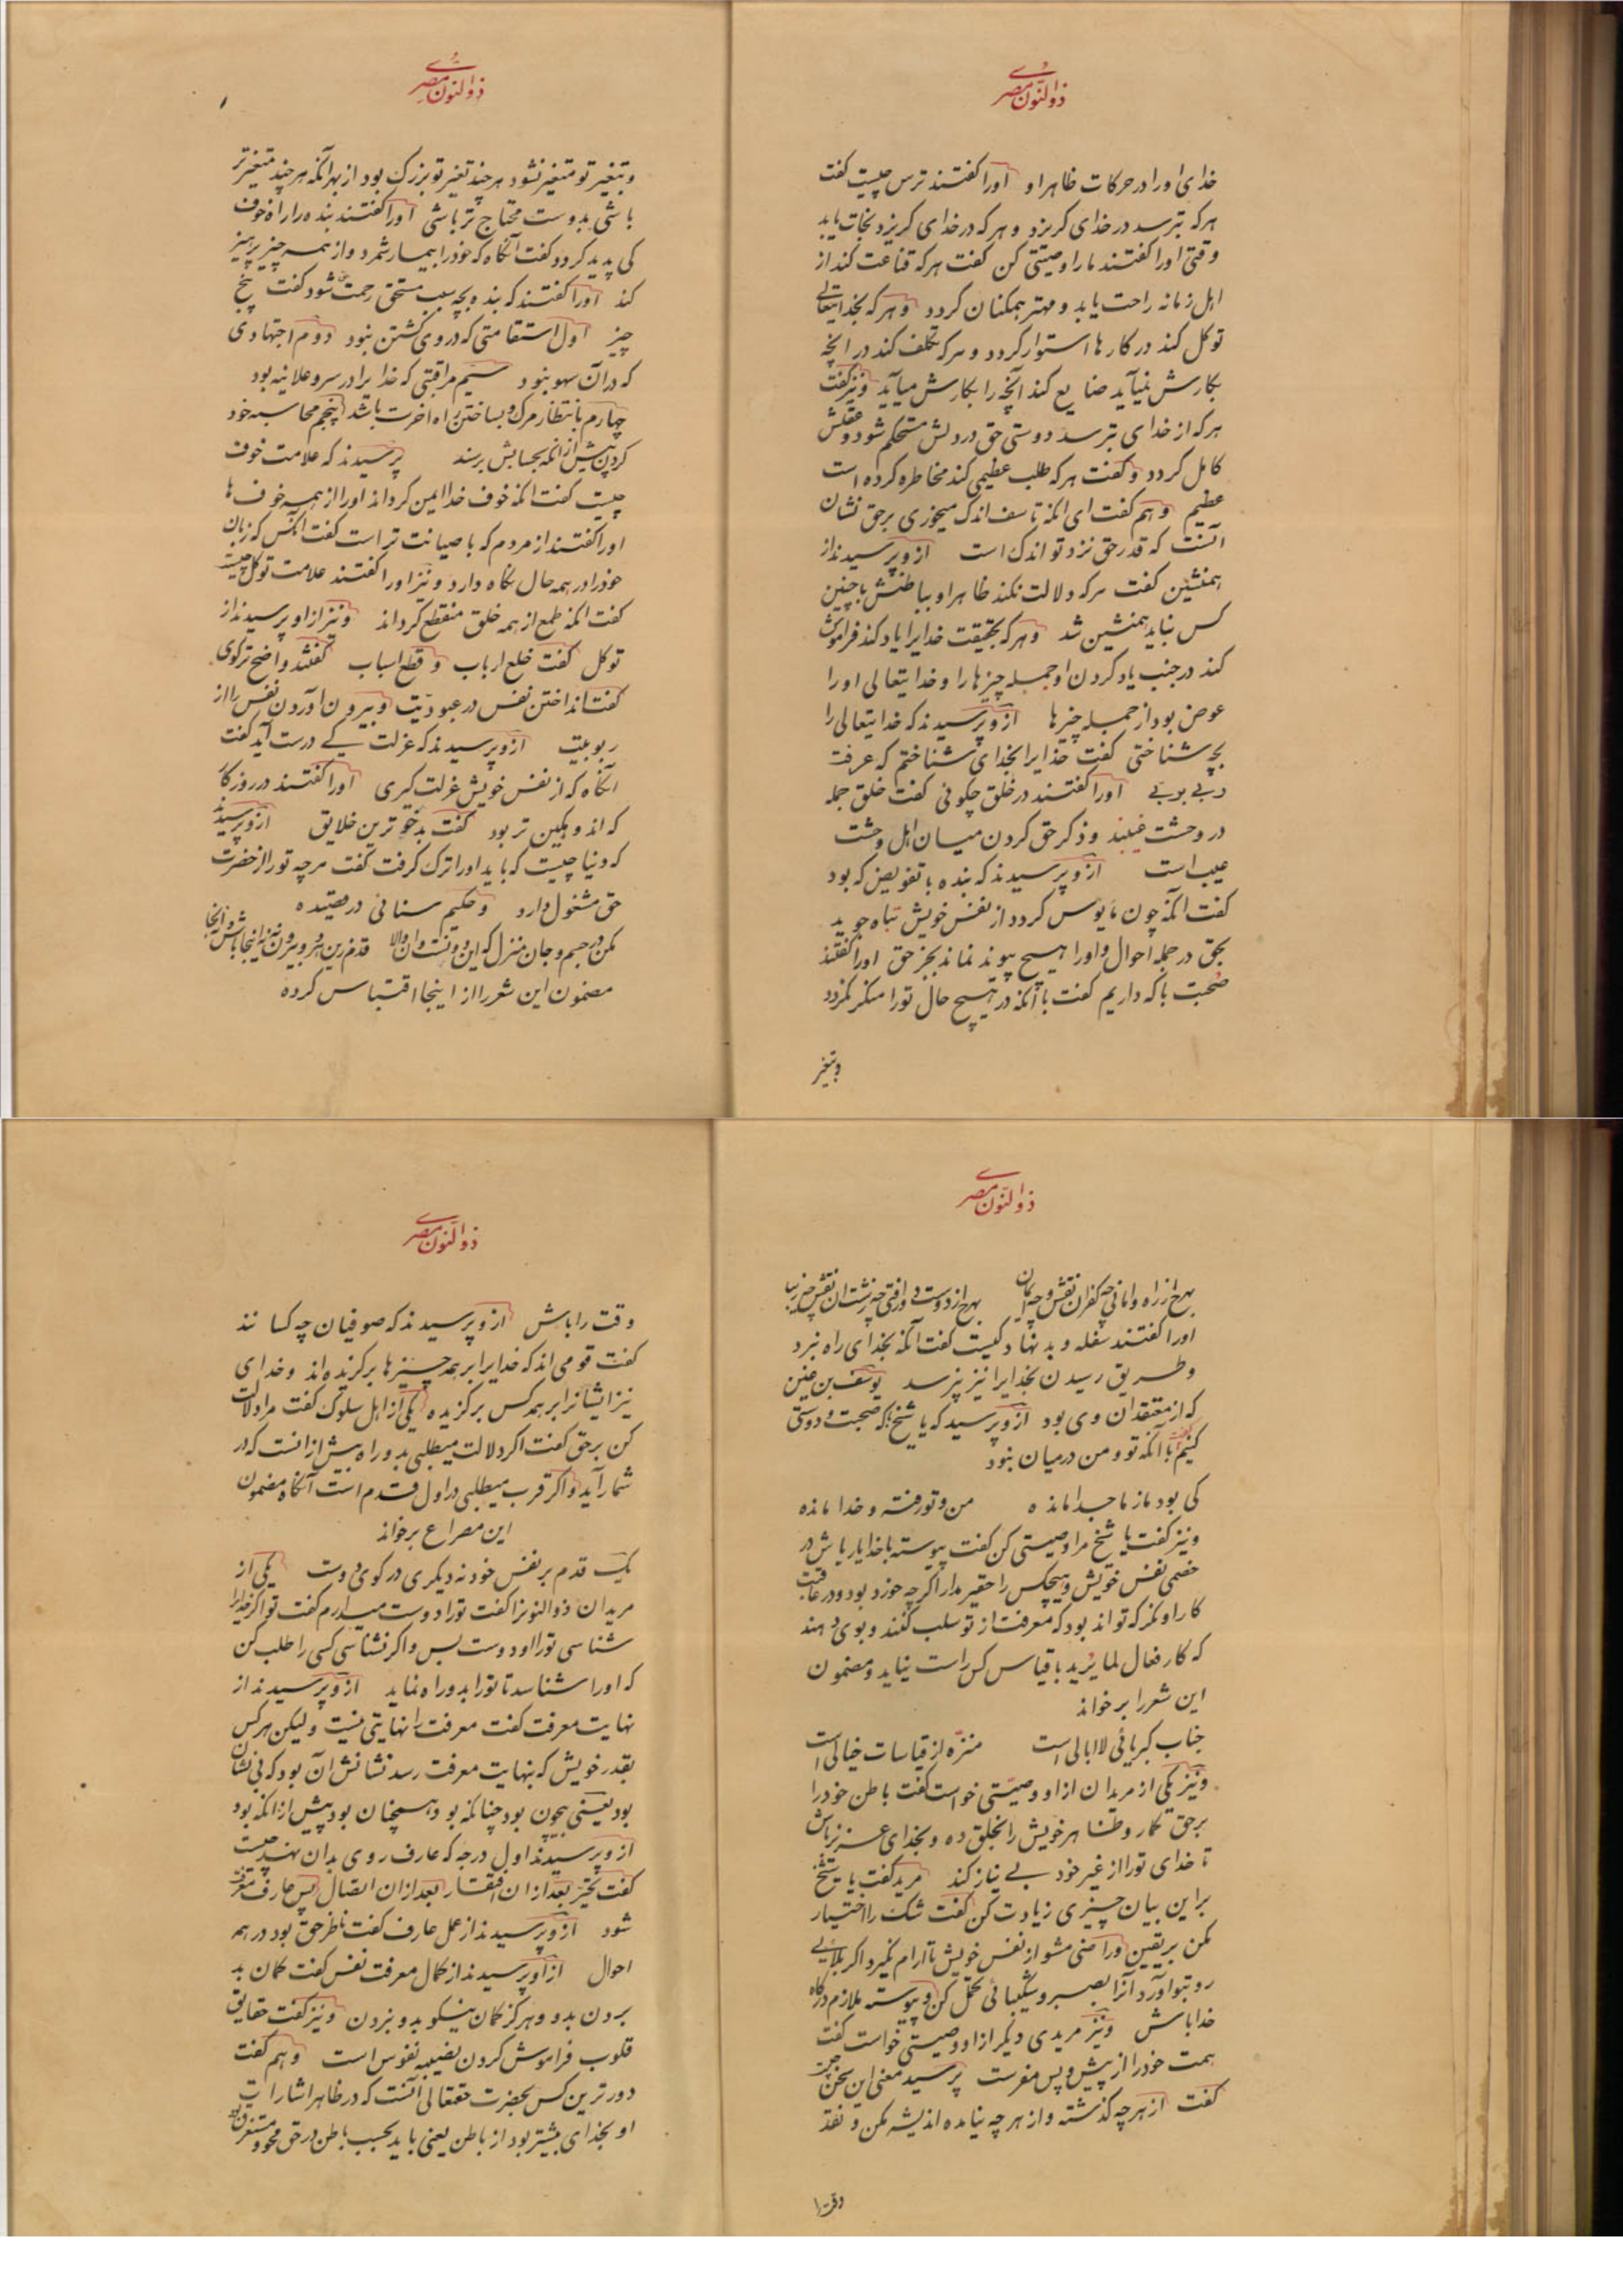 ذوالنون مصری
خدای اورا در حرکات ظاهر او اورا کفتند ترس چیست کفت
هرکه بترسد در خدای کریزد و هرکه در خدای کریزد نجات یابد
وقتی اورا کفتند مارا وصیتی کن کفت هرکه قناعت کند از
اهل زمانه راحت یابد و مهتر همکنان کردد و هرکه بخدایتعالی
توکل کند در کارها استوار کردد و هرکه تکلف کند در انچه
بکارش نمیآید ضایع کند آنچه را بکارش میآید و نیز کفت
هرکه از خدای بترسد دوستی حق در دلش مستحکم شود و عقلش
کامل کردد و کفت هرکه طلب عظیمی کند مخاطره کرده است
عظیم و هم کفت ای انکه تاسف اندک میخوری بر حق نشان
انست که قدر حق نزد تو اندک است از و پرسیدند از
همنشین کفت هرکه دلالت نکند ظاهر او بباطنش با چنین
کس نباید همنشین شد و هرکه بحقیقت خدایرا یاد کند فراموش
کند در جنب یاد کردن او جمله چیزها را و خدایتعالی اورا
عوض بود از جمله چیزها از و پرسیدند که خدایتعالی را
بچه شناختی کفت خدایرا بخدای شناختم که عرفت
ربی بربی اورا کفتند در خلق چکوئی کفت خلق جمله
در وحشت غیبند و ذکر حق کردن میان اهل وحشت
عیب است از و پرسیدند که بنده با تفویض که بود
کفت انکه چون مایوس کردد از نفس خویش پناه جوید
بحق در جمله احوال و اورا هیچ پیوند نماند بجز حق اورا کفتند
صحبت با که داریم کفت با آنکه در هیچ حال تورا منکر نکردد
و بتغیر
ذوالنون مصری
و بتغیر تو متغیر نشود هر چند تغیر تو بزرک بود از بهر آنکه هر چند متغیرتر
باشی بدوست محتاج تر باشی اورا کفتند بنده را راه خوف
کی پدید کردد کفت آنکاه که خودرا بیمار شمرد و از همه چیز پرهیز
کند اورا کفتند که بنده بچه سبب مستحق رحمت شود کفت پنج
چیز اول استقامتی که در وی کشتن نبود دوم اجتهادی
که در آن سهو نبود سیم مراقبتی که خدایرا در سر و علانیه بود
چهارم بانتظار مرک و بساختن راه اخرت باشد پنجم محاسبه خود
کردن پیش از انکه بحسابش برسند پرسیدند که علامت خوف
چیست کفت انکه خوف خدا ایمن کرداند اورا از همه خوف ها
اورا کفتند از مردم که با صیانت تر است کفت انکس که زبان
خودرا در همه حال نکاه دارد و نیز اورا کفتند علامت توکل چیست
کفت انکه طمع از همه خلق منقطع کرداند و نیز از او پرسیدند از
توکل کفت خلع ارباب و قطع اسباب کفتند واضح تر کوی
کفت انداختن نفس در عبودیت و بیرون آوردن نفس را از
ربوبیت از و پرسیدند که عزلت کی درست آید کفت
انکاه که از نفس خویش عزلت کیری اورا کفتند در روزکار
که اندوهکین تر بود کفت بدخوترین خلایق از و پرسیدند
که دنیا چیست که باید اورا ترک کرفت کفت هرچه تورا از حضرت
حق مشغول دارد و حکیم سنائی در قصیده
مکن در جسم و جان منزل که این دونست و ان والا قدم زین هر دو بیرون نه نه اینجا باش و نه انجا
مضمون این شعر را از اینجا اقتباس کرده
ذوالنون مصری
بهرچ از راه وامانی چه کفران نقش و چه ایمان بهرچ از دوست دور افتی چه زشت ان نقش چه زیبا
اورا کفتند سفله و بد نهاد کیست کفت آنکه بخدای راه نبرد
و طریق رسیدن بخدایرا نیز نپرسد یوسف بن حنین
که از معتقدان وی بود از و پرسید که یا شیخ با که صحبت و دوستی
کنیم کفت با انکه تو و من در میان نبود
کی بود ما ز ما جدا مانده من و تو رفته و خدا مانده
و نیز کفت یا شیخ مرا وصیتی کن کفت پیوسته با خدا یار باش در
خصمی نفس خویش و هیچکس را حقیر مدار اکرچه خورد بود و در عاقبت
کار او نکر که تواند بود که معرفت از تو سلب کنند و بوی دهند
که کار فعال لما یرید با قیاس کس راست نیاید و مضمون
این شعر را برخواند
جناب کبریائی لا ابالی است منزه از قیاسات خیالی است
و نیز یکی از مریدان از او وصیتی خواست کفت باطن خودرا
بر حق بکمار و ظاهر خویش را بخلق ده و بخدای عزیز باش
تا خدای تورا از غیر خود بی نیاز کند مرید کفت یا شیخ
براین بیان چیزی زیادت کن کفت شک را اختیار
مکن بر یقین و راضی مشو از نفس خویش تا آرام نکیرد اکر بلائی
رو بتو آورد آنرا بصبر و شکیبائی تحمل کن و پیوسته ملازم درکاه
خدا باش و نیز مریدی دیکر از او وصیتی خواست کفت
همت خودرا از پیش و پس مفرست پرسید معنی این سخن چیست
کفت از هرچه کذشته و از هرچه نیامده اندیشه مکن و نقد
وقت را
ذوالنون مصری
وقت را باش از و پرسیدند که صوفیان چه کسانند
کفت قومی اند که خدایرا بر همه چیزها برکزیده اند و خدای
نیز ایشانرا بر همه کس برکزیده یکی از اهل سلوک کفت مرا دلالت
کن بر حق کفت اکر دلالت میطلبی بدو راه بیش از انست که در
شمار آید و اکر قرب میطلبی در اول قدم است آنکاه مضمون
این مصراع برخواند
یک قدم بر نفس خود نه دیکری در کوی دوست یکی از
مریدان ذوالنونرا کفت تورا دوست میدارم کفت تو اکر خدایرا
شناسی تورا او دوست بس و اکر نشناسی کسی را طلب کن
که اورا شناسد تا تورا بدو راه نماید از و پرسیدند از
نهایت معرفت کفت معرفت را نهایتی نیست ولیکن هرکس
بقدر خویش که بنهایت معرفت رسد نشانش آن بود که بی نشان
بود یعنی بیچون بود چنانکه بود و همچنان بود پیش از انکه بود
از و پرسیدند اول درجه که عارف روی بدان نهد چیست
کفت تحیر بعد از ان افتقار بعد از ان اتصال پس عارف
شود از و پرسیدند از عمل عارف کفت ناظر حق بود در همه
احوال از او پرسیدند از کمال معرفت نفس کفت کمان بد
بردن بدو و هرکز کمان نیکو بدو نبردن و نیز کفت حقایق
قلوب فراموش کردن نصیبه نفوس است و هم کفت
دورترین کس بحضرت حقتعالی آنست که در ظاهر اشارات
او بخدای بیشتر بود از باطن یعنی باید بحسب باطن در حق محو و مستغرق بود